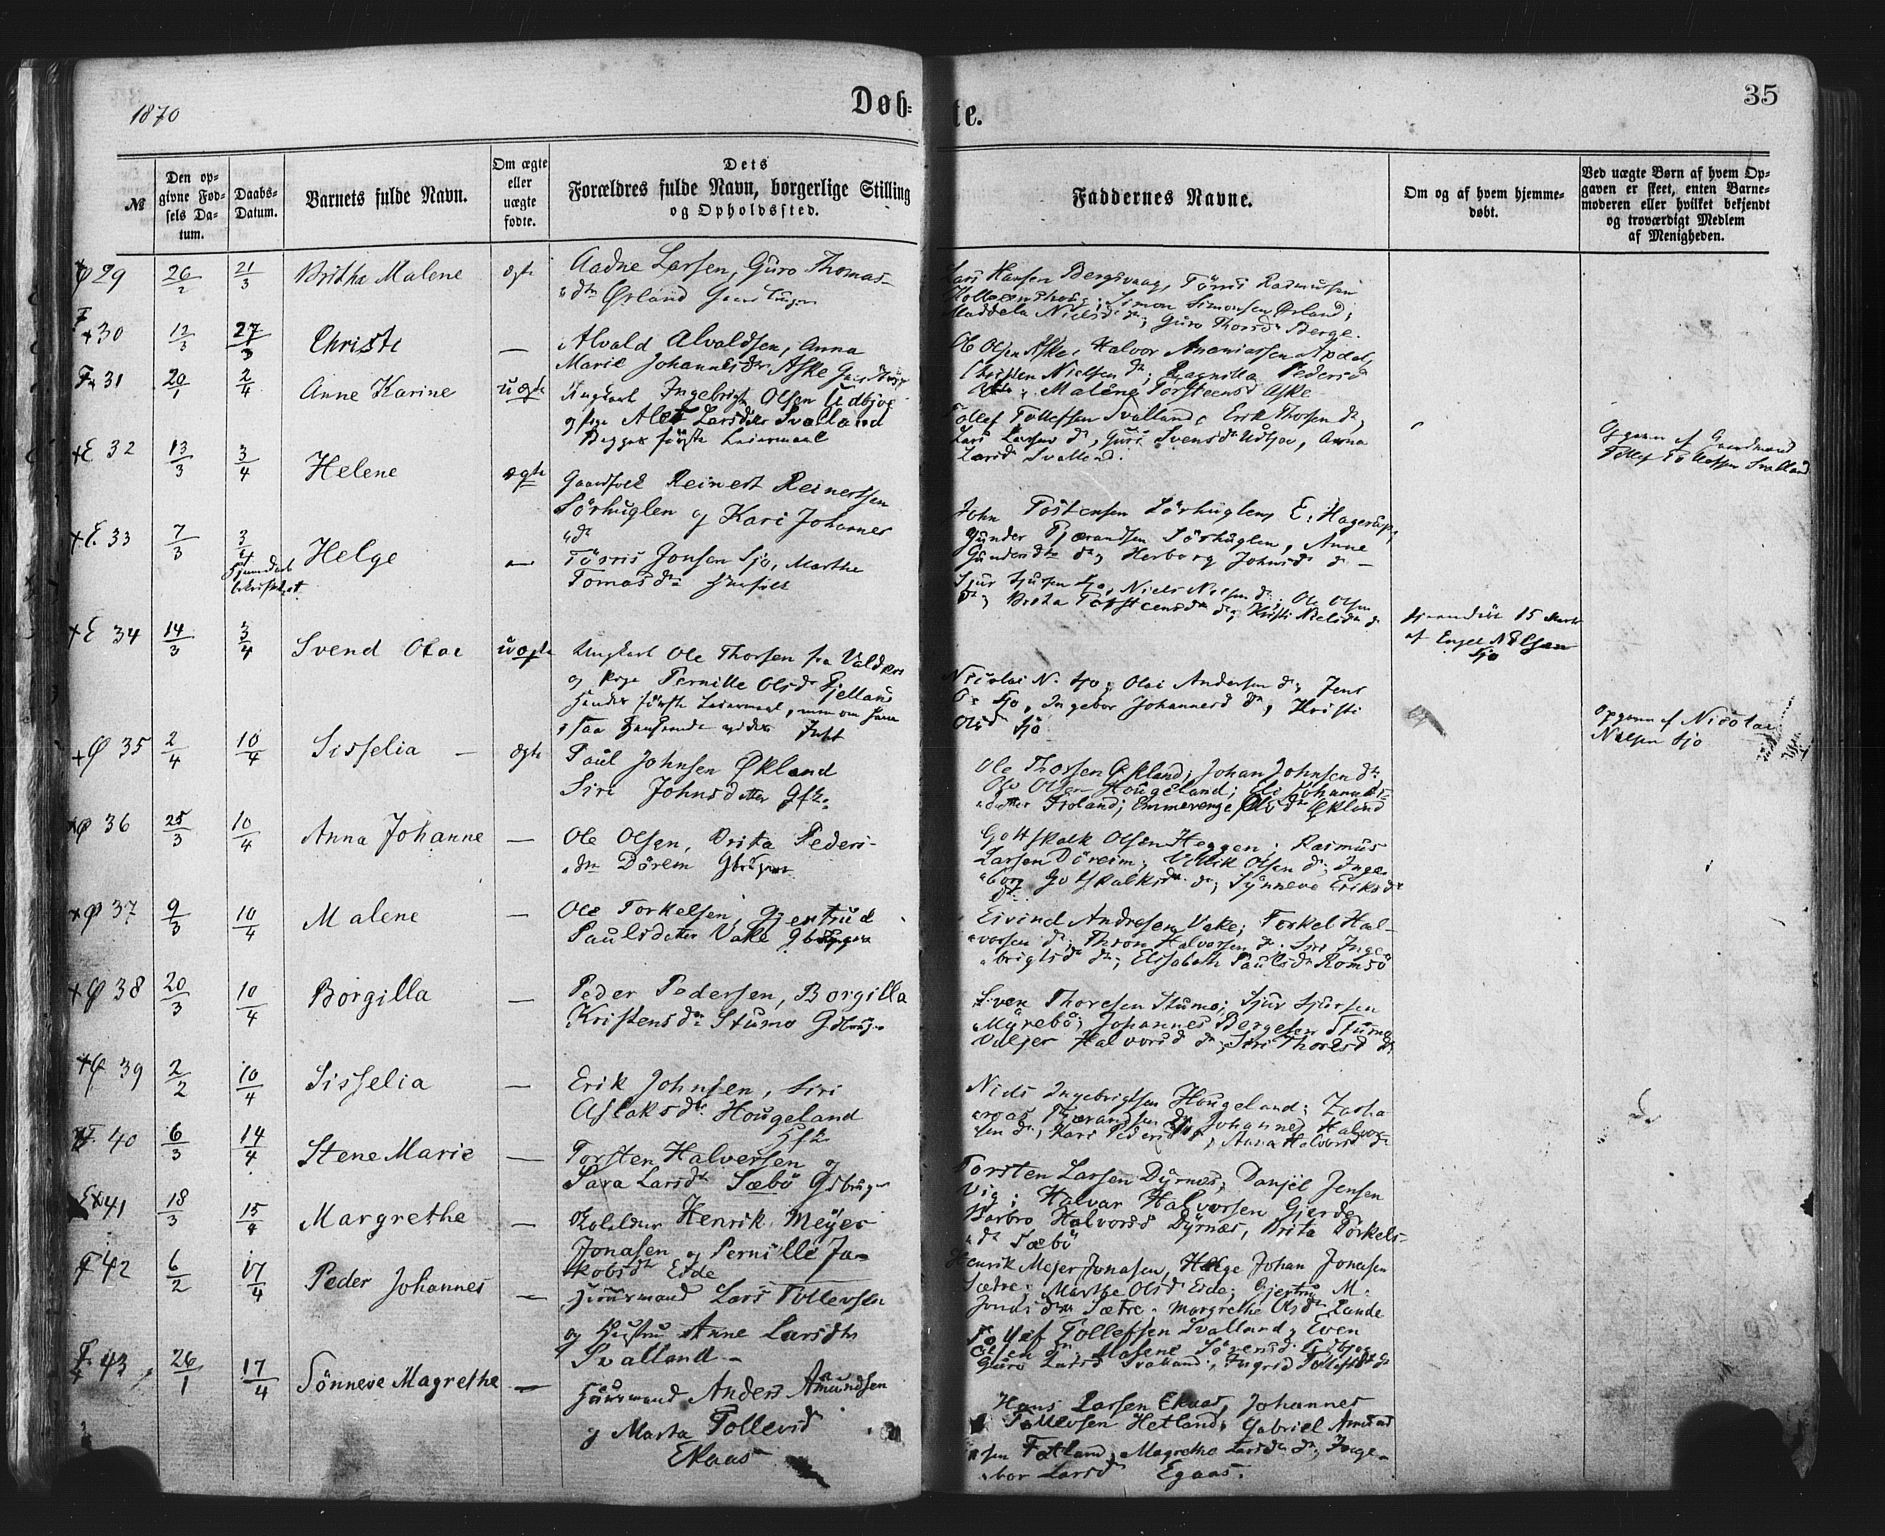 1870
Døb=
te.
35
№
Den op-
givne Fød-
sels Da-
tum.
Daabs-
Datum.
Barnets fulde Navn.
Om ægte
eller
uægte
fødte.
Dets
Forældres fulde Navn, borgerlige Stilling
og Opholdssted.
Faddernes Navne.
Om og af hvem hjemme-
døbt.
Ved uægte Børn af hvem Op-
gaven er skeet, enten Barne-
moderen eller hvilket bekjendt
og troværdigt Medlem
af Menigheden.
29 26/2 21/3 Britha Malene ægte Aadne Larsen, Guro Thomas-
dtr Ørland
Lars Hansen Bergsvaag, Törris Rasmussen
Simon Simonsen Ørland;
Maddela Nielsd dr; Guro Thorsdr Berge.
30 12/3 27/3 Christi — Alvald Alvaldsen, Anna
Marie Johannesdr Aske
Ole Olsen Aske, Halvor Ananiassen Apdal,
Christen Nielsen dr; Ragnilla Pedersd
Malene Torsteensd Aske
31 20/1 2/4 Anne Karine uægte Ungkarl Ingebrigt Olsen Udbjoe
og Pige Alet Larsdter Svalland
Begges første Leiermaal
Tollef Tollefsen Svalland, Erik Thorsen dr,
Lars Larsen dr, Guri Svensdr Udbjoe, Anna
Larsd Svalland.
Opgaven af Gaardmand
Tollef Tollefsen Svalland
32 13/3 3/4 Helene ægte Gaardfolk Reinert Reinertsen
Sörhuglen og Kari Johannes
dr
John Tostensen Sörhuglen, E. Hagerup,
Gunder Tjærandsen Sörhuglen, Anne
Gundersdtr dr, Herborg Johnsd dr —
33 7/3 3/4 Helge — Törris Jonsen Sjo, Marthe
Tomasdr Husfolk
Hjemmedaab
bekræftet
Sjur Sjursen Sjo, Niels Nilsen dr; Ole Olsen
dr, Brita Torsteensdtr dr, Kristi Nielsdr dr
Hjemmedøbt 15 Marts
af Engel Nilsen
Sjo
34 14/3 3/4 Svend Olai uægte Ungkarl Ole Thorsen fra Valders
og Pige Pernille Olsdr Fjelland
Nicolai N. Sjo, Olai Andersen dr, Jens
O. Sjo, Ingebor Johannesd dr, Kristi
Olsd Sjö
Opgaven af Nicolai
Nilsen Sjo
35 2/4 10/4 Sisselia — ægte Paul Johnsen Økland
Siri Johnsdatter Gflk.
Ole Thorsen Økland; Johan Johnsen dr;
Ole Olsen Hougeland; Johannes-
datter Froland; Emmerenze Olsdr Økland
36 25/3 10/4 Anna Johanne — Ole Olsen, Brita Peders-
dtr Dörem Gbruger
Gotskalk Olsen Heggen; Rasmus
Larsen Döreim; Olsen dr; Inge-
borg Gotskalksdtr dr; Synneve Eriksdr
dr
37 9/3 10/4 Malene — Ole Torkelsen, Gjertrud
Paulsdatter Vake Gbruger
Eivind Andersen Vake; Torkel Hal-
vorsen dr; Thron Halvorsen dr. Siri Inge-
brigtsdr dr; Elisabeth Paulsdr Romsö
38 20/3 10/4 Borgilla — Peder Pedersen, Borgilla
Kristensdtr Stumo Gdbrug
Sven Thoresen Stumo; Sjur Sjursen
Myrebö; Johannes Bergesen Stumo
Halvorsd dr; Siri Thoresd dr
39 2/2 10/4 Sisselia — Erik Johnsen, Siri
Aslaksdtr Hougeland
Gflk
Niels Ingebrigtsen Hougeland; Zacha-
Tjærandsen Johannes Halvor-
sen dr; Kari Pedersd Anna Halvorsd dr
40 6/3 14/4 Stene Marie — Torsten Halversen og
Sara Larsdtr Sæbö Gdbrug
Torsten Larsen Dyrnæs, Danjel Jensen
Vig; Halvar Halvorsen Gjerde,
Barbro Halvorsd Dyrnæs, Brita Torkels-
dtr Sæbö
41 18/3 15/4 Margrethe — Henrik Meyer
Jonasen og Pernille Ja-
kobsdtr Eide
Henrik Mejer Jonasen, Helge Johan Jonasen
Sætre; Marthe Olsd Eide; Gjertru M.
Jonasdtr Sætre. Margrethe Olsdtr Lunde
42 6/2 17/4 Peder Johannes — Huusmand Lars Tollevsen
og Hustru Anne Larsdtr
Svalland —
Tollef Tollefsen Svalland, Even
Olsen dr; Malene Udbjoe,
Guro Larsd Svalland, Ingrid Tollefsdtr dr
43 26/1 17/4 Sönneve Magrethe — Huusmand Anders Amundsen
og Marta Tollevsd
Ekaas
Hans Larsen Ekaas, Johannes
Tollevsen Hetland, Gabriel Amund-
sen Fatland, Magrethe Larsdtr dr, Inge-
bor Larsd Egaas.